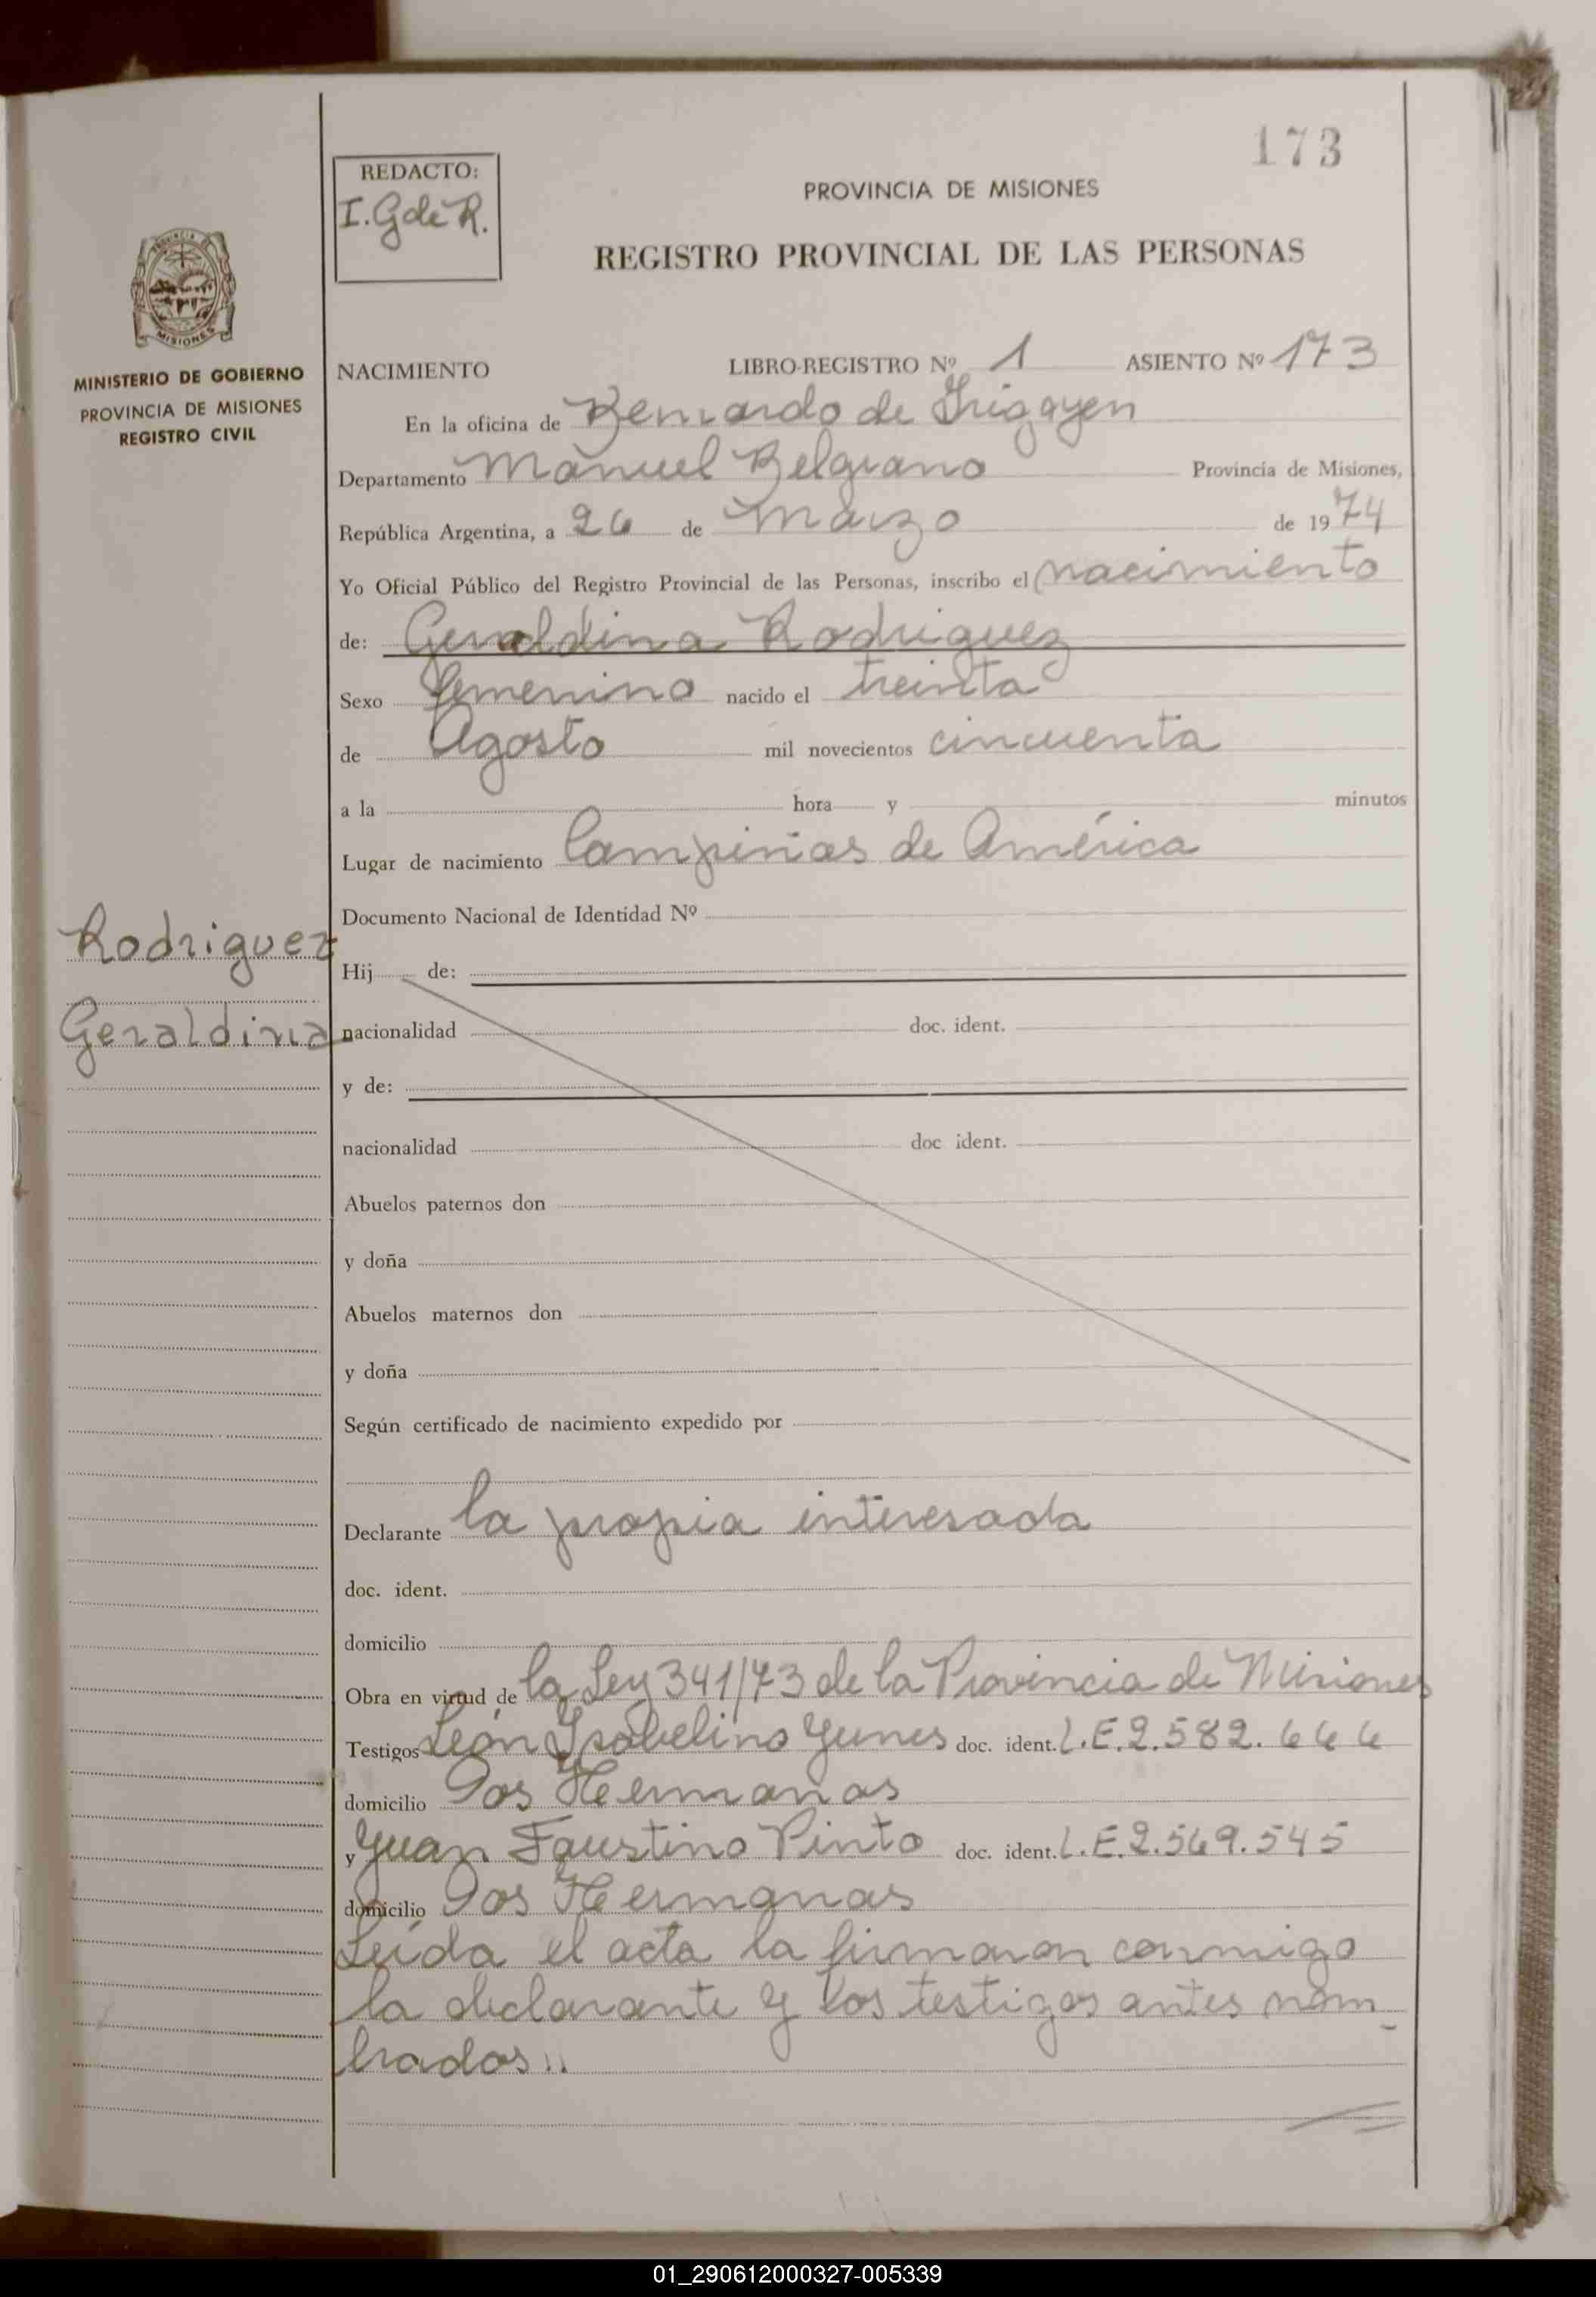 173
REDACTO:
I. G de R.
PROVINCIA DE MISIONES
REGISTRO PROVINCIAL DE LAS PERSONAS
MISIONES
MINISTERIO DE GOBIERNO
PROVINCIA DE MISIONES
REGISTRO CIVIL
NACIMIENTO LIBRO-REGISTRO Nº 1 ASIENTO Nº 173
En la oficina de Bernardo de Irigoyen
Departamento Manuel Belgrano Provincia de Misiones,
República Argentina, a 26 de Marzo de 1974
Yo Oficial Público del Registro Provincial de las Personas, inscribo el nacimiento
de: Geraldina Rodriguez
Sexo femenino nacido el treinta
de Agosto mil novecientos cincuenta
a la hora y minutos
Lugar de nacimiento Campiñas de América
Documento Nacional de Identidad Nº
Rodriguez
Geraldina
Hij de:
nacionalidad doc. ident.
y de:
nacionalidad doc ident.
Abuelos paternos don
y doña
Abuelos maternos don
y doña
Según certificado de nacimiento expedido por
Declarante la propia interesada
doc. ident.
domicilio
Obra en virtud de la Ley 341/73 de la Provincia de Misiones
Testigos León Ysabelino Yunes doc. ident. L.E.2.582.666
domicilio Dos Hermanas
y Juan Faustino Pinto doc. ident. L.E.2.569.545
domicilio Dos Hermanas
Leída el acta la firmaron conmigo
la declarante y los testigos antes nom-
brados..
01_290612000327-005339